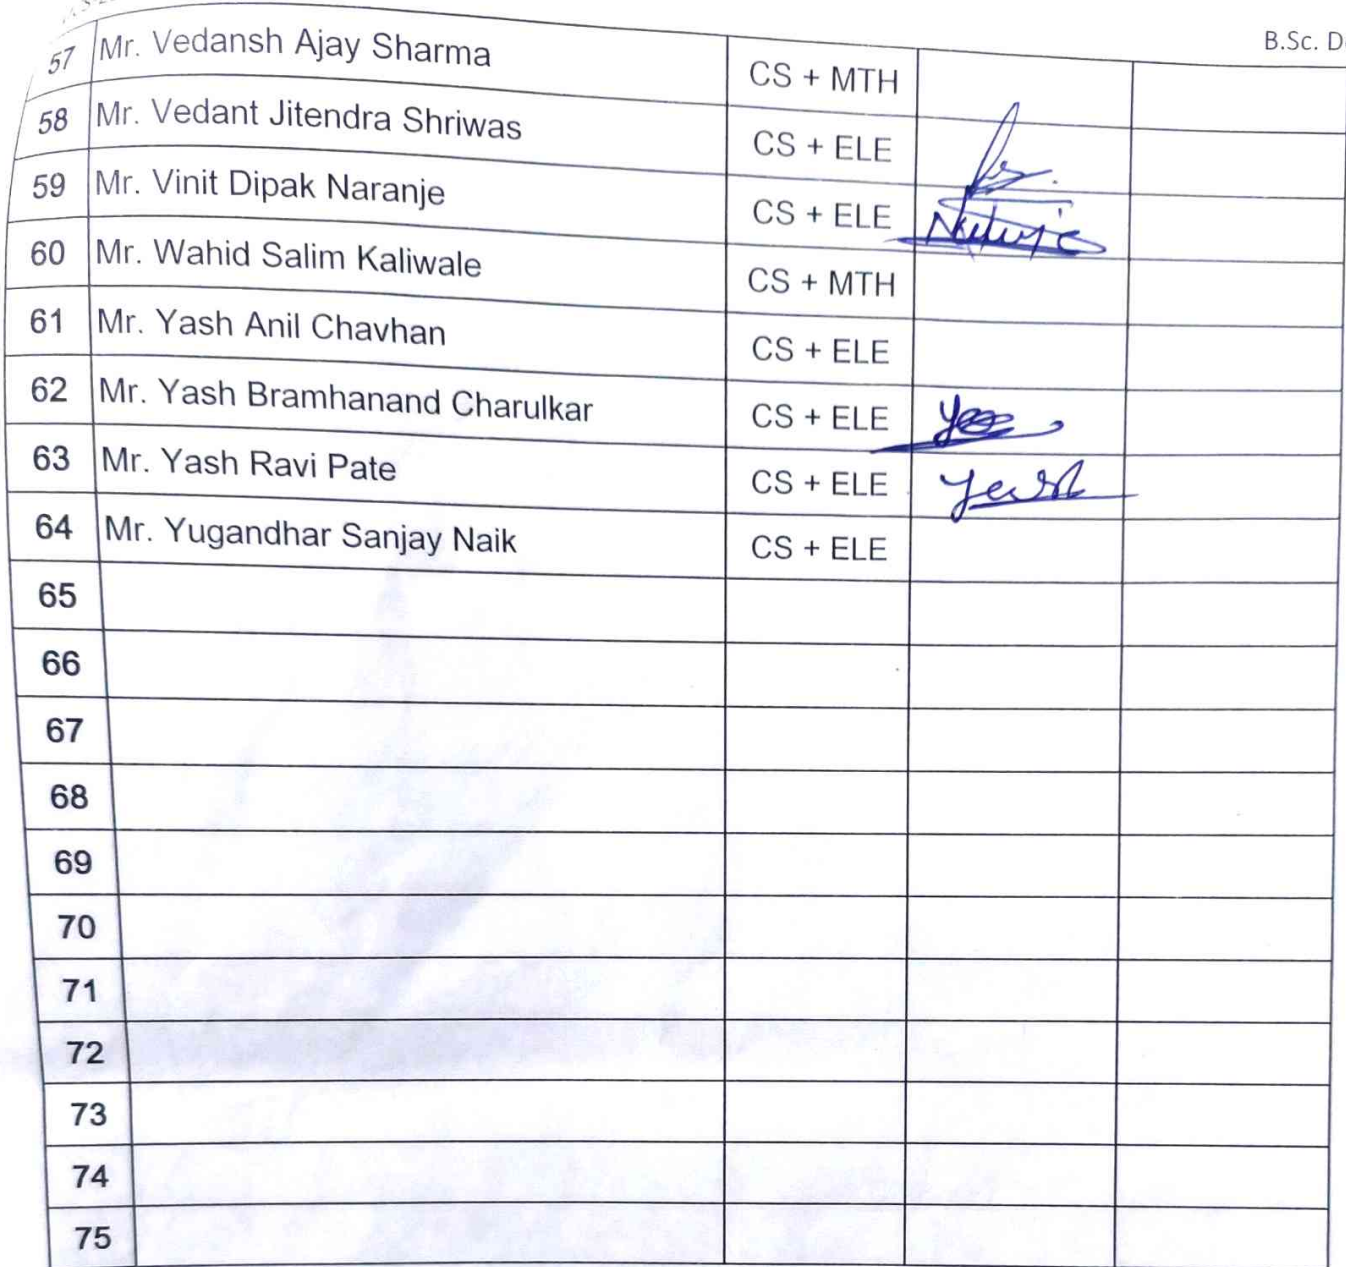 B.Sc.
57 Mr. Vedansh Ajay Sharma CS + MTH
58 Mr. Vedant Jitendra Shriwas CS + ELE
59 Mr. Vinit Dipak Naranje CS + ELE
60 Mr. Wahid Salim Kaliwale CS + MTH
61 Mr. Yash Anil Chavhan CS + ELE
62 Mr. Yash Bramhanand Charulkar CS + ELE
63 Mr. Yash Ravi Pate CS + ELE Yash
64 Mr. Yugandhar Sanjay Naik CS + ELE
65
66
67
68
69
70
71
72
73
74
75